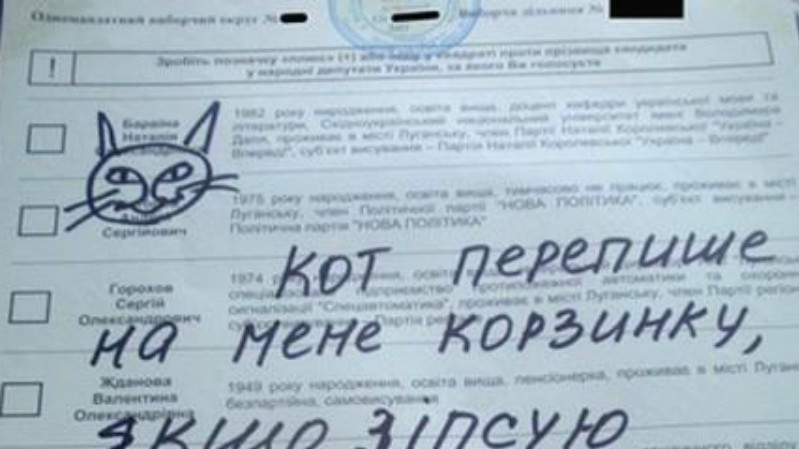 Одномандатний виборчий округ №
Виборча дільниця №
!
Зробіть позначку «плюс» (+) або іншу у квадраті проти прізвища кандидата
у народні депутати України, за якого Ви голосуєте
Наталія
1982 року народження, освіта вища, доцент кафедри української мови та
літератури, Східноукраїнський національний університет імені Володимира
Даля, проживає в місті Луганську, член Партії Наталії Королевської "Україна –
Вперед!", суб'єкт висування – Партія Наталії Королевської "Україна – Вперед!"
Сергійович
1975 року народження, освіта вища, тимчасово не працює, проживає в місті
Луганську, член Політичної партії "НОВА ПОЛІТИКА", суб'єкт висування –
Політична партія "НОВА ПОЛІТИКА"
КОТ ПЕРЕПИШЕ
Горохов
Сергій
Олександрович
1974
автоматики та охоронн
сигналізації "Спецавтоматика", проживає в місті Луганську, член Партії регіон
НА МЕНЕ КОРЗИНКУ,
Жданова
Валентина
Олександрівна
1949 року народження, освіта вища, пенсіонерка, проживає в місті Луган
безпартійна, самовисування
ЯКЩО ЗІПСУЮ